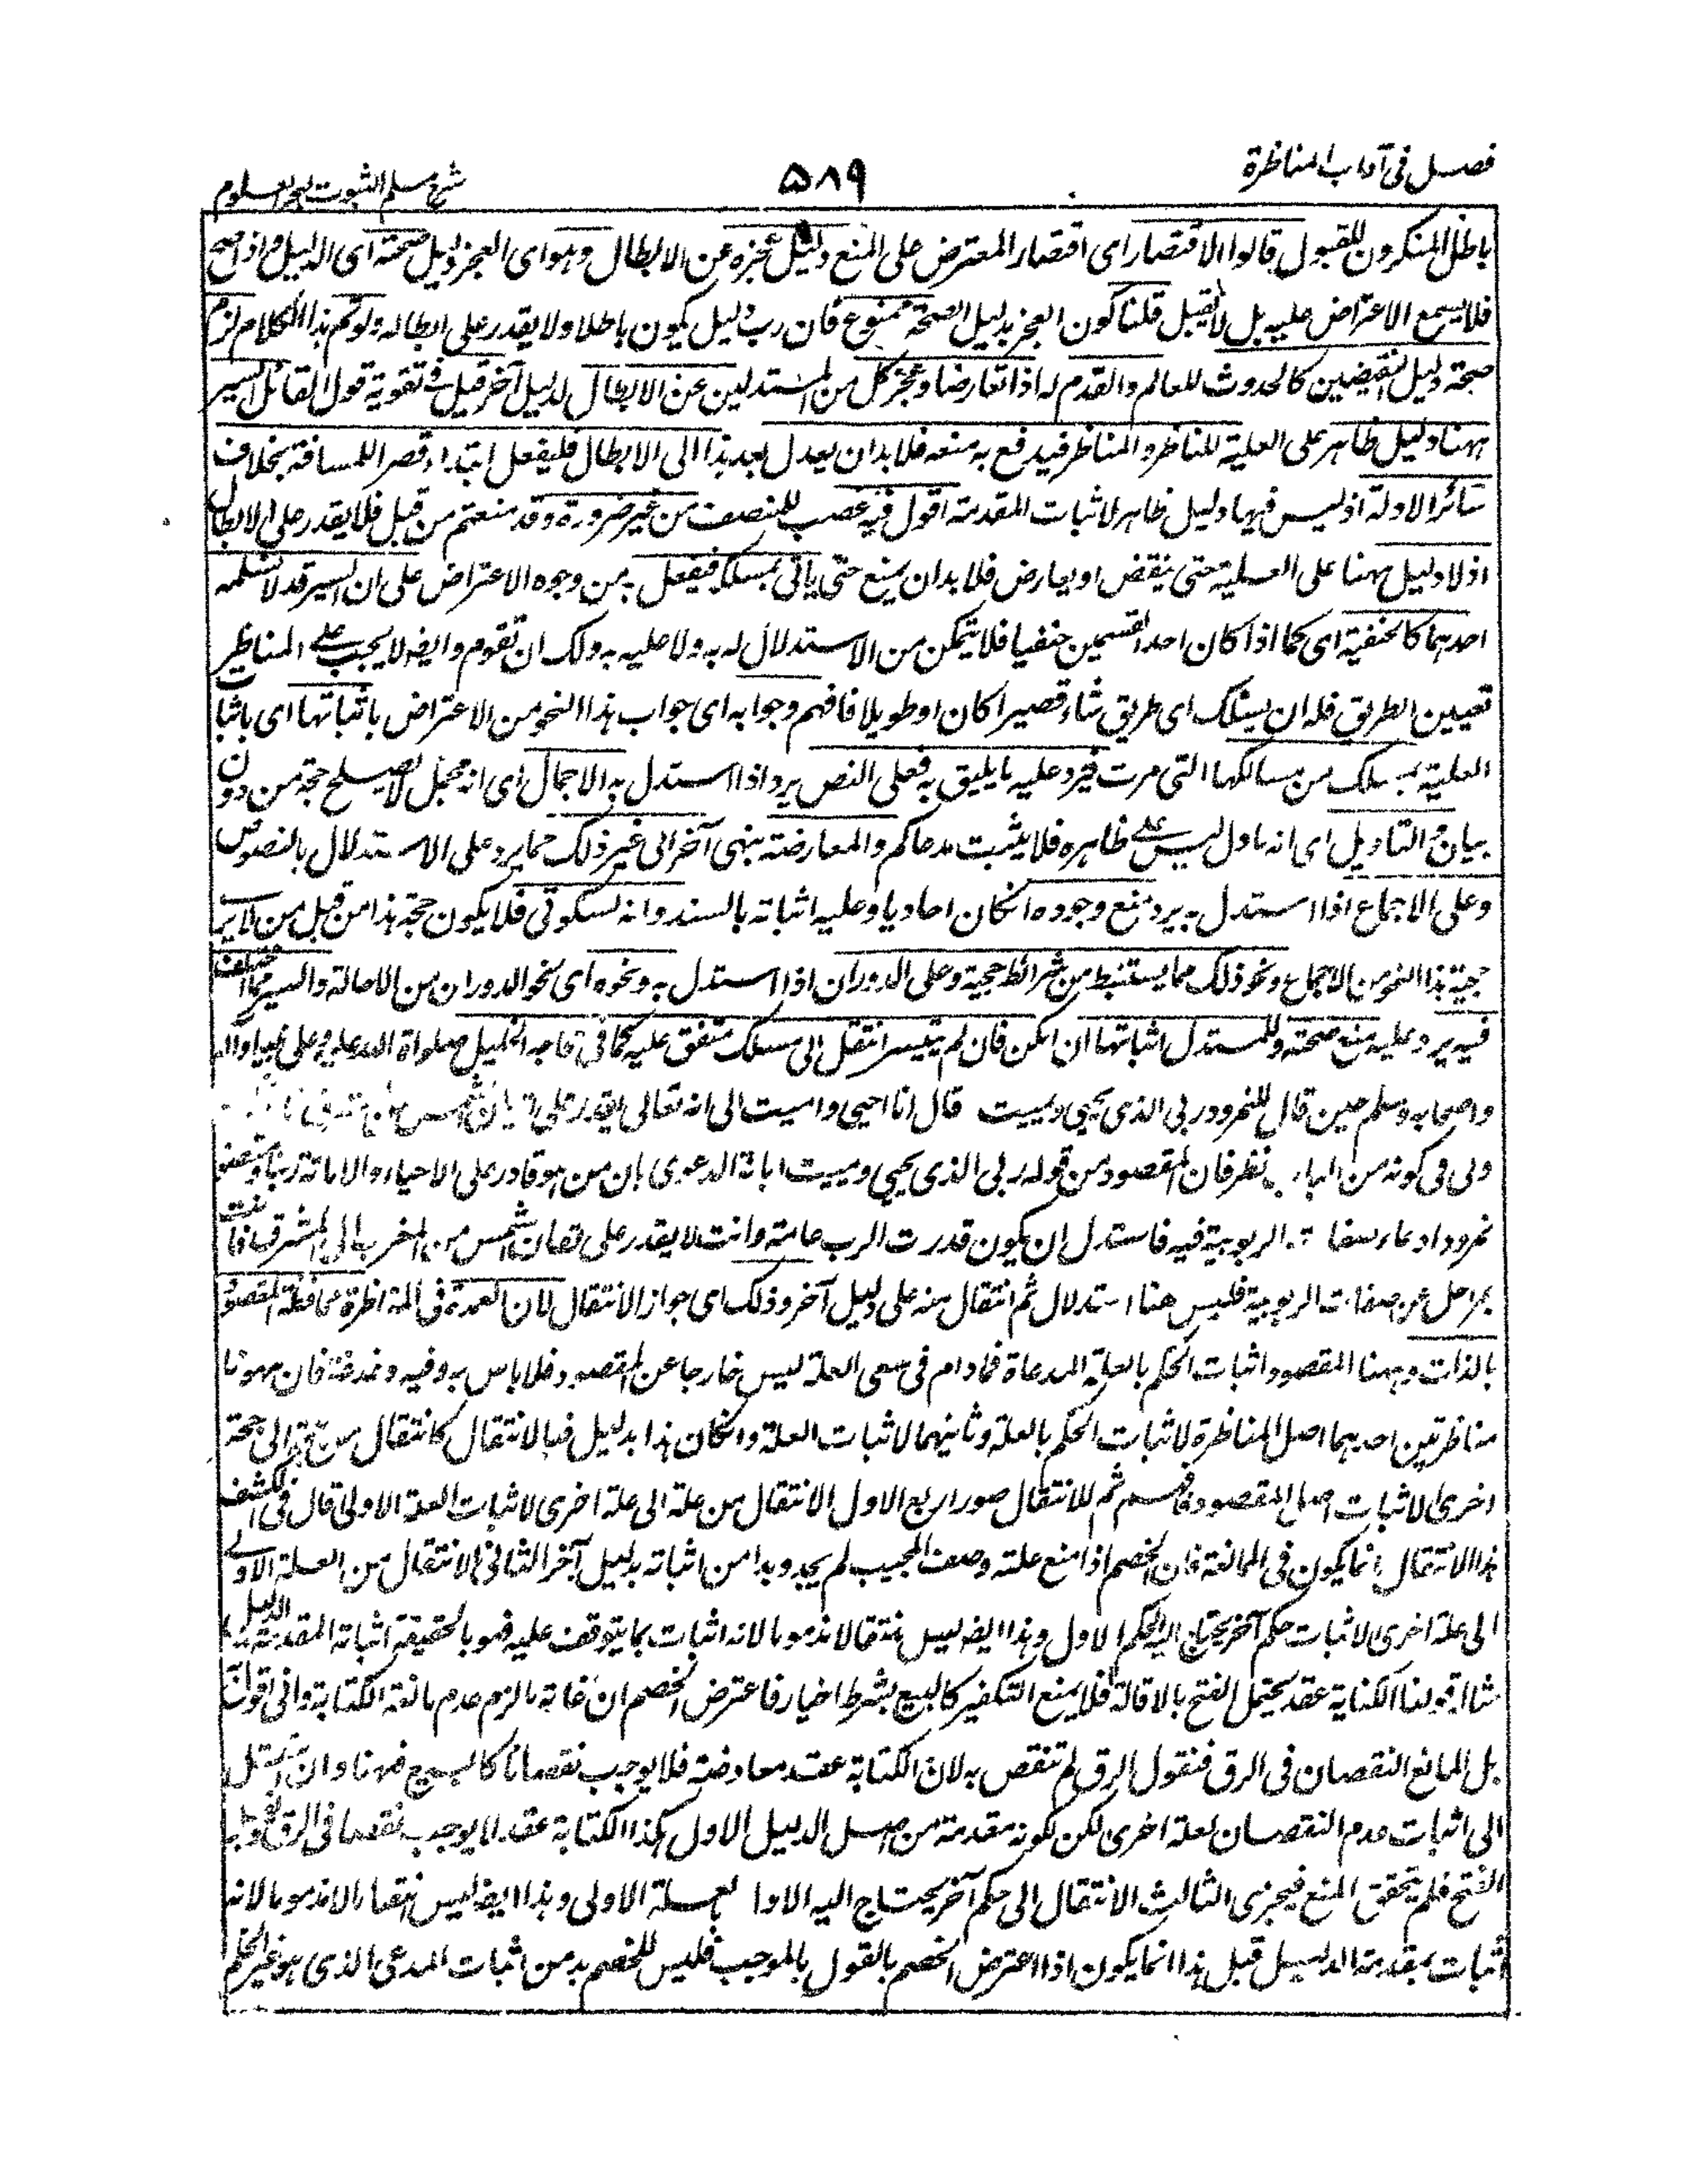 فصل فی آداب المناظرة
۵۸۹
شرح مسلم الثبوت لبحر العلوم
باطل المنکرون للقبول قالوا الاقتصار ای اقتصار المعترض علی المنع دلیل عجزه عن الابطال وهو ای العجز دلیل صحته ای الدلیل واذا صح
فلا یسمع الاعتراض علیه بل لا یقبل قلنا کون العجز دلیل الصحة ممنوع فان رب دلیل یکون باطلا ولا یقدر علی ابطاله ولو تم هذا الکلام لزم
صحة دلیل النقیضین کالحدوث للعالم والقدم له اذا تعارضا وعجز کل من المستدلین عن الابطال لدلیل آخر قیل فی تقویة قول القائل السبر
ههنا دلیل ظاهر علی العلیة للناظر والمناظر فیدفع به منعه فلا بد ان یعدل بعد هذا الی الابطال فلیفعل ابتداء قصرا للمسافة بخلاف
سائر الادلة اذ لیس فیها دلیل ظاهر لاثبات المقدمة اقول فیه غصب للمنصف من غیر ضرورة وقد منعتم من قبل فلا یقدر علی الابطال
اذ لا دلیل ههنا علی العلیة حتی ینقض او یعارض فلا بد ان یمنع حتی یاتی بمسلک فیفعل به من وجوه الاعتراض علی ان السبر قد لا یسلمه
احدهما کالحنفیة ای کما اذا کان احد القسمین حنفیا فلا یتمکن من الاستدلال له به ولا علیه به ولک ان تقوم وایضا لا یجب علی المناظر
تعیین الطریق فله ان یسلک ای طریق شاء قصیرا کان او طویلا فافهم وجوابه ای جواب هذا النحو من الاعتراض باثباتها ای باثبات
العلیة بمسلک من مسالکها التی مرت فیرد علیه ما یلیق به فعلی النص یرد اذا استدل به الاجمال ای انه مجمل لا یصلح حجة من دون
بیان والتاویل ای انه ماول لیس علی ظاهره فلا یثبت مدعاکم والمعارضة بنهی آخر الی غیر ذلک مما یرد علی الاستدلال بالنصوص
وعلی الاجماع اذا استدل به یرد منع وجوده انکان احادیا وعلیه اثباته بالسند وانه سکوتی فلا یکون حجة هذا من قبل من لا یری
حجیة هذا النحو من الاجماع ونحو ذلک مما یستنبط من شرائط حجیة وعلی الدوران اذا استدل به ونحوه ای نحو الدوران من الاحالة والسبر مما اختلف
فیه یرد علیه منع صحته وللمستدل اثباتها ان امکن فان لم یتیسر انتقل الی مسلک متفق علیه کما فی محاجة الخلیل صلواة الله علیه وعلی نبینا وآله
واصحابه وسلم حین قال للنمرود ربی الذی یحیی ویمیت قال انا احیی وامیت الی انه تعالی یقدر علی
ولی فی کونه من الباب نظر فان المقصود من قوله ربی الذی یحیی ویمیت ابانة الدعوی بان من هو قادر علی الاحیاء والاماتة ربنا
نمرود ادعاء صفات الربوبیة فیه فاستدل ان یکون قدرت الرب عامة وانت لا یقدر علی اتیان الشمس من المغرب الی المشرق فانت
بمراحل عن صفات الربوبیة فلیس هنا استدلال ثم انتقال منه علی دلیل آخر وذلک ای جواز الانتقال لان العمدة فی المناظرة محافظة المقصود
بالذات وههنا المقصود اثبات الحکم بالعلة المدعاة فما دام فی سعی العلة لیس خارجا عن المقصود فلا باس به وفیه وغدغة فان ههنا
مناظرتین احدیهما اصل المناظرة لاثبات الحکم بالعلة وثانیهما لاثبات العلة وانکان هذا بدلیل فبالانتقال کانتقال من حجة الی حجة
اخری لاثبات اصل المقصود فافهم ثم للانتقال صور اربع الاول الانتقال من علة الی علة اخری لاثبات العلة الاولی قال فی الکشف
هذا الانتقال انما یکون فی الممانعة فان الخصم اذا منع علته وصف المجیب لم یجد بدا من اثباته بدلیل آخر الثانی الانتقال من العلة الاولی
الی علة اخری لاثبات حکم آخر یحتاج الیه الحکم الاول وهذا ایضا لیس منتقالا مذموما لانه اثبات بما یتوقف علیه فهو بالحقیقة اثباته المقدمة الدلیل
مثاله قولنا الکتابة عقد یحتمل الفتح بالاقالة فلا یمنع التکفیر کالبیع بشرط الخیار فاعترض الخصم ان غایة ما لزم عدم مانعة الکتابة وانی اقول
بل المانع النقصان فی الرق فنقول الرق لم تنقص به لان الکتابة عقد معاوضة فلا یوجب نقصانا کالبیع فههنا وان انتقل
الی اثبات عدم النقصان لعلة اخری لکن لکونه مقدمة من اصل الدلیل الاول هکذا الکتابة عقد لا یوجب نقصا فی الرق
الفتح فلم یتحقق المنع فیجزی الثالث الانتقال الی حکم آخر یحتاج الیه الاول لعلة الاولی وهذا ایضا لیس انتقالا مذموما لانه
اثبات بمقدمة الدلیل قبل هذا انما یکون اذا اعترض الخصم بالقول بالموجب فلیس للخصم بد من اثبات المدعی الذی هو غیر الحکم